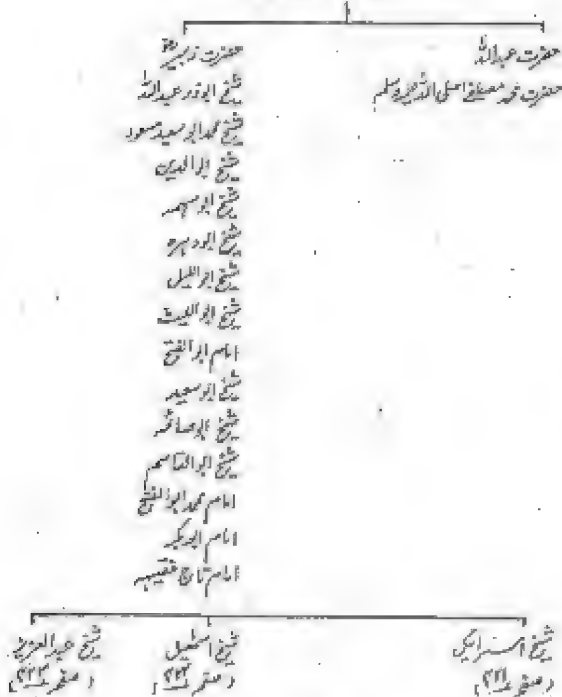 حضرت عبداللہ
حضرت محمد مصطفےٰ صلی اللہ علیہ وسلم
حضرت زبیرؓ
شیخ ابوذر عبداللہ
شیخ محمد ابو سعید مسعود
شیخ ابوالدین
شیخ ابو سہمہ
شیخ ابو دہرہ
شیخ ابواللیل
شیخ ابواللیث
امام ابوالفتح
شیخ ابو سعید
شیخ ابو صائم
شیخ ابوالقاسم
امام محمد ابوالفتح
امام ابوبکر
امام تاج فقیہہ
شیخ اسرائیل شیخ اسمٰعیل شیخ عبدالعزیز
(صفحہ ۲۲۱) (صفحہ ۲۲۲) (صفحہ ۲۲۳)